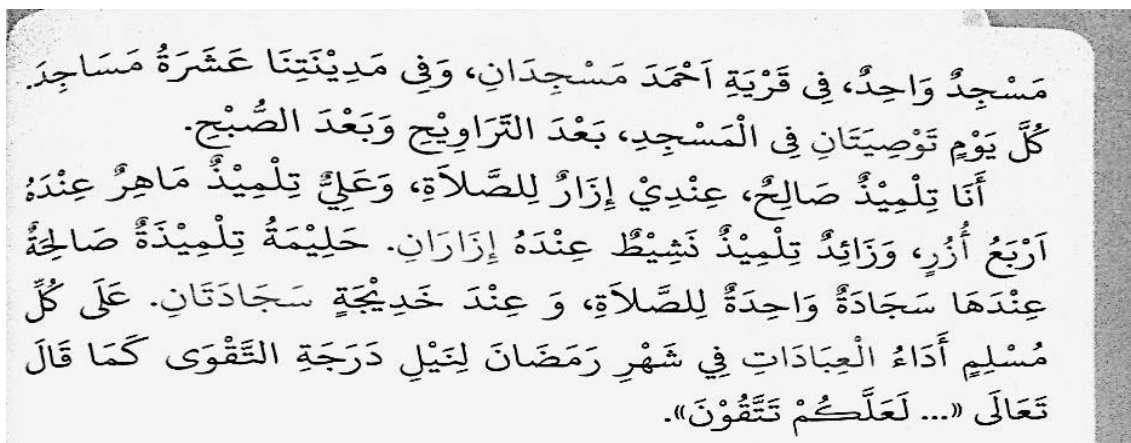 مَسْجِدٌ وَاحِدٌ، فِى قَرْيَةِ اَحْمَدَ مَسْجِدَانِ، وَفِى مَدِيْنَتِنَا عَشَرَةُ مَسَاجِدَ.
كُلَّ يَوْمٍ تَوْصِيَتَانِ فِى الْمَسْجِدِ، بَعْدَ التَّرَاوِيْحِ وَبَعْدَ الصُّبْحِ.
أَنَا تِلْمِيْذٌ صَالِحٌ، عِنْدِيْ إِزَارٌ لِلصَّلاَةِ، وَعَلِيٌّ تِلْمِيْذٌ مَاهِرٌ عِنْدَهُ
اَرْبَعُ أُزُرٍ، وَزَائِدٌ تِلْمِيْذٌ نَشِيْطٌ عِنْدَهُ إِزَارَانِ. حَلِيْمَةُ تِلْمِيْذَةٌ صَالِحَةٌ
عِنْدَهَا سَجَادَةٌ وَاحِدَةٌ لِلصَّلاَةِ، وَ عِنْدَ خَدِيْجَةٍ سَجَادَتَانِ. عَلَى كُلِّ
مُسْلِمٍ أَدَاءُ الْعِبَادَاتِ فِي شَهْرِ رَمَضَانَ لِنَيْلِ دَرَجَةِ التَّقْوَى كَمَا قَالَ
تَعَالَى «... لَعَلَّكُمْ تَتَّقُوْنَ».